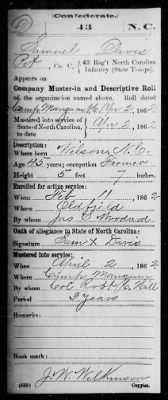 (Confederate.)
D 43 N.C.
Samuel Davis
Pvt, Co. C, 43 Reg't North Carolina
Infantry (State Troops).
Appears on
Company Muster-in and Descriptive Roll
of the organization named above, dated
Camp Mangum Apr 2, 1862
Mustered into service of
State of North Carolina, Apr 2, 1862
Description:
Where born Wilson, N.C.
Age 43 years; occupation Farmer
Height 5 feet 7 inches.
Enrolled for active service:
When Feb 11, 1862
Where Oldfield
By whom Jas S Woodard
Oath of allegiance to State of North Carolina:
Signature Sam X Davis
Mustered into service:
When April 2, 1862
Where Camp Mangum
By whom Col Robt H.
Period 3 years
Remarks:
Book mark:
J. W. Wilkinson
Copyist.